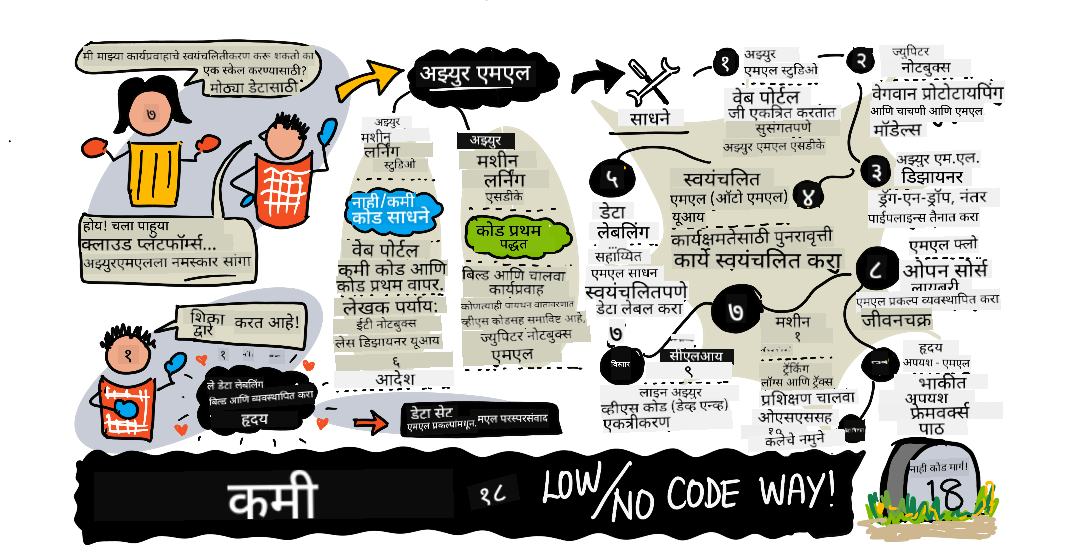 मी माझ्या कार्यप्रवाहाचे स्वयंचलितीकरण करू शकतो का
एक स्केल करण्यासाठी?
मोठ्या डेटासाठी
७
होय! चला पाहुया
क्लाउड प्लॅटफॉर्म्स...
अझ्युरएमएलला नमस्कार सांगा
शिका
द्वारे
करत आहे!
१
१
ले डेटा लेबलिंग
बिल्ड आणि व्यवस्थापित करा
हृदय
डेटा सेट
एमएल प्रकल्पांमधून,
मएल परस्परसंवाद
अझ्युर एमएल
अझ्युर
मशीन
लर्निंग
स्टुडिओ
नाही/कमी
कोड साधने
वेब पोर्टल
कमी कोड आणि
कोड प्रथम वापर.
लेखक पर्याय:
ईटी नोटबुक्स
लेस डिझायनर यूआय
६
आदेश
अझ्युर
मशीन
लर्निंग
एसडीके
कोड प्रथम
पद्धत
बिल्ड आणि चालवा
कार्यप्रवाह
व्हीएस कोडसह समाविष्ट आहे,
ज्युपिटर नोटबुक्स
एमएल
साधने
१
अझ्युर
एमएल स्टुडिओ
वेब पोर्टल
जी एकत्रित करतात
सुसंगतपणे
अझ्युर एमएल एसडीके
२
ज्युपिटर
नोटबुक्स
वेगवान प्रोटोटायपिंग
आणि चाचणी आणि एमएल
मॉडेल्स
३
अझ्युर एम.एल.
डिझायनर
ड्रॅग-एन-ड्रॉप, नंतर
पाईपलाइन्स तैनात करा
४
स्वयंचलित
एमएल (ऑटो एमएल)
यूआय
कार्यक्षमतेसाठी पुनरावृत्ती
कार्ये स्वयंचलित करा
५
डेटा
लेबलिंग
सहाय्यित
एमएल साधन
स्वयंचलितपणे
डेटा लेबल करा
७
विस्तार
सीएलआय
९
लाइन अझ्युर
व्हीएस कोड (डेव्ह एन्व्ह)
एकत्रीकरण
७
मशीन
१
ट्रॅकिंग
लॉग्स आणि ट्रॅक्स
प्रशिक्षण चालवा
ओएसएससह
१०
कलेचे नमुने
८
एमएल फ्लो
ओपन सोर्स
लायब्ररी
एमएल प्रकल्प व्यवस्थापित करा
जीवनचक्र
हृदय
अपयश - एमएल
भाकीत
अपयश
फ्रेमवर्क्स
पाठ
कमी
१८
LOW/NO CODE WAY!
नाही कोड मार्ग!
18